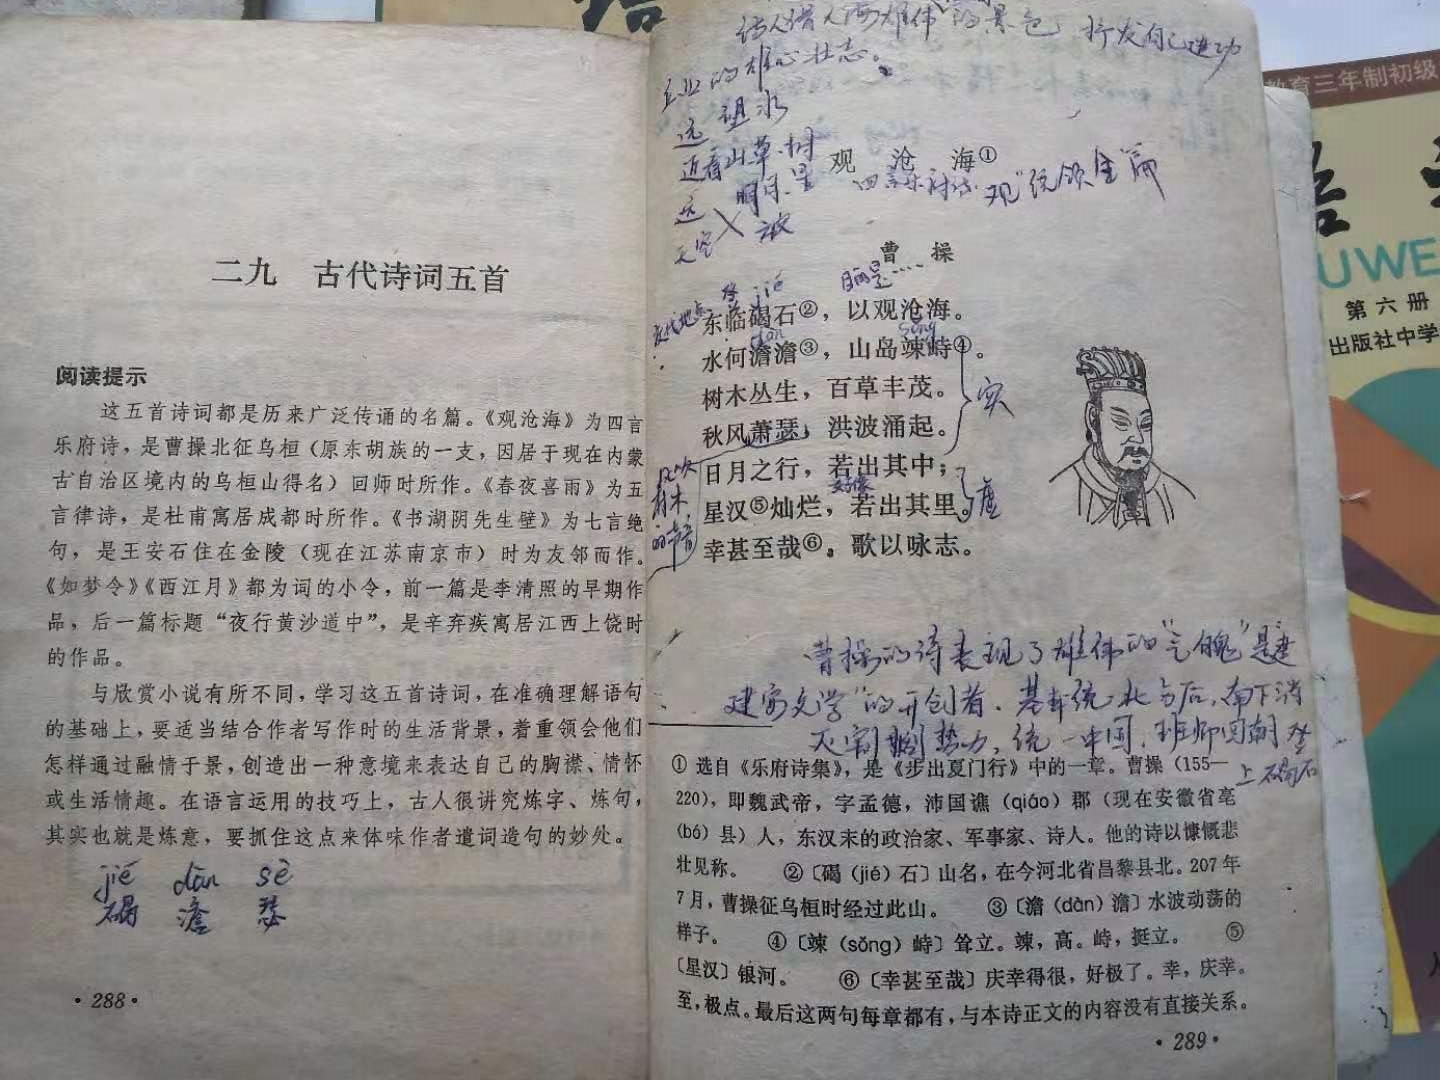 二九 古代诗词五首
阅读提示
这五首诗词都是历来广泛传诵的名篇。《观沧海》为四言
乐府诗，是曹操北征乌桓（原东胡族的一支，因居于现在内蒙
古自治区境内的乌桓山得名）回师时所作。《春夜喜雨》为五
言律诗，是杜甫寓居成都时所作。《书湖阴先生壁》为七言绝
句，是王安石住在金陵（现在江苏南京市）时为友邻而作。
《如梦令》《西江月》都为词的小令，前一篇是李清照的早期作
品，后一篇标题“夜行黄沙道中”，是辛弃疾寓居江西上饶时
的作品。
与欣赏小说有所不同，学习这五首诗词，在准确理解语句
的基础上，要适当结合作者写作时的生活背景，着重领会他们
怎样通过融情于景，创造出一种意境来表达自己的胸襟、情怀
或生活情趣。在语言运用的技巧上，古人很讲究炼字、炼句，
其实也就是炼意，要抓住这点来体味作者遣词造句的妙处。
jié dàn sè
碣 澹 瑟
·288·
的景色，抒发自己建功
立业的雄心壮志。
远 望 水
近看山草.树
远
天空
观 沧 海①
四言乐府诗. 观“统领全篇
曹 操
登 jié
目的是....
交代地点
东临碣石②，以观沧海。
dàn sǒng
水何澹澹③，山岛竦峙④。
树木丛生，百草丰茂。
实
秋风萧瑟，洪波涌起。
日月之行，若出其中；
好像
星汉⑤灿烂，若出其里。
虚
风吹
树木
的声音
幸甚至哉⑥，歌以咏志。
曹操的诗表现了雄伟的“气魄”是
建安文学”的开创者.
灭割据势力，统一中国，班师回朝 登
上碣石
① 选自《乐府诗集》，是《步出夏门行》中的一章。曹操（155—
220），即魏武帝，字孟德，沛国谯（qiáo）郡（现在安徽省亳
（bó）县）人，东汉末的政治家、军事家、诗人。他的诗以慷慨悲
壮见称。 ②〔碣（jié）石〕山名，在今河北省昌黎县北。207年
7月，曹操征乌桓时经过此山。 ③〔澹（dàn）澹〕水波动荡的
样子。 ④〔竦（sǒng）峙〕耸立。竦，高。峙，挺立。 ⑤
〔星汉〕银河。 ⑥〔幸甚至哉〕庆幸得很，好极了。幸，庆幸。
至，极点。最后这两句每章都有，与本诗正文的内容没有直接关系。
·289·
教育三年制初级
语
UWE
第六册
出版社中学